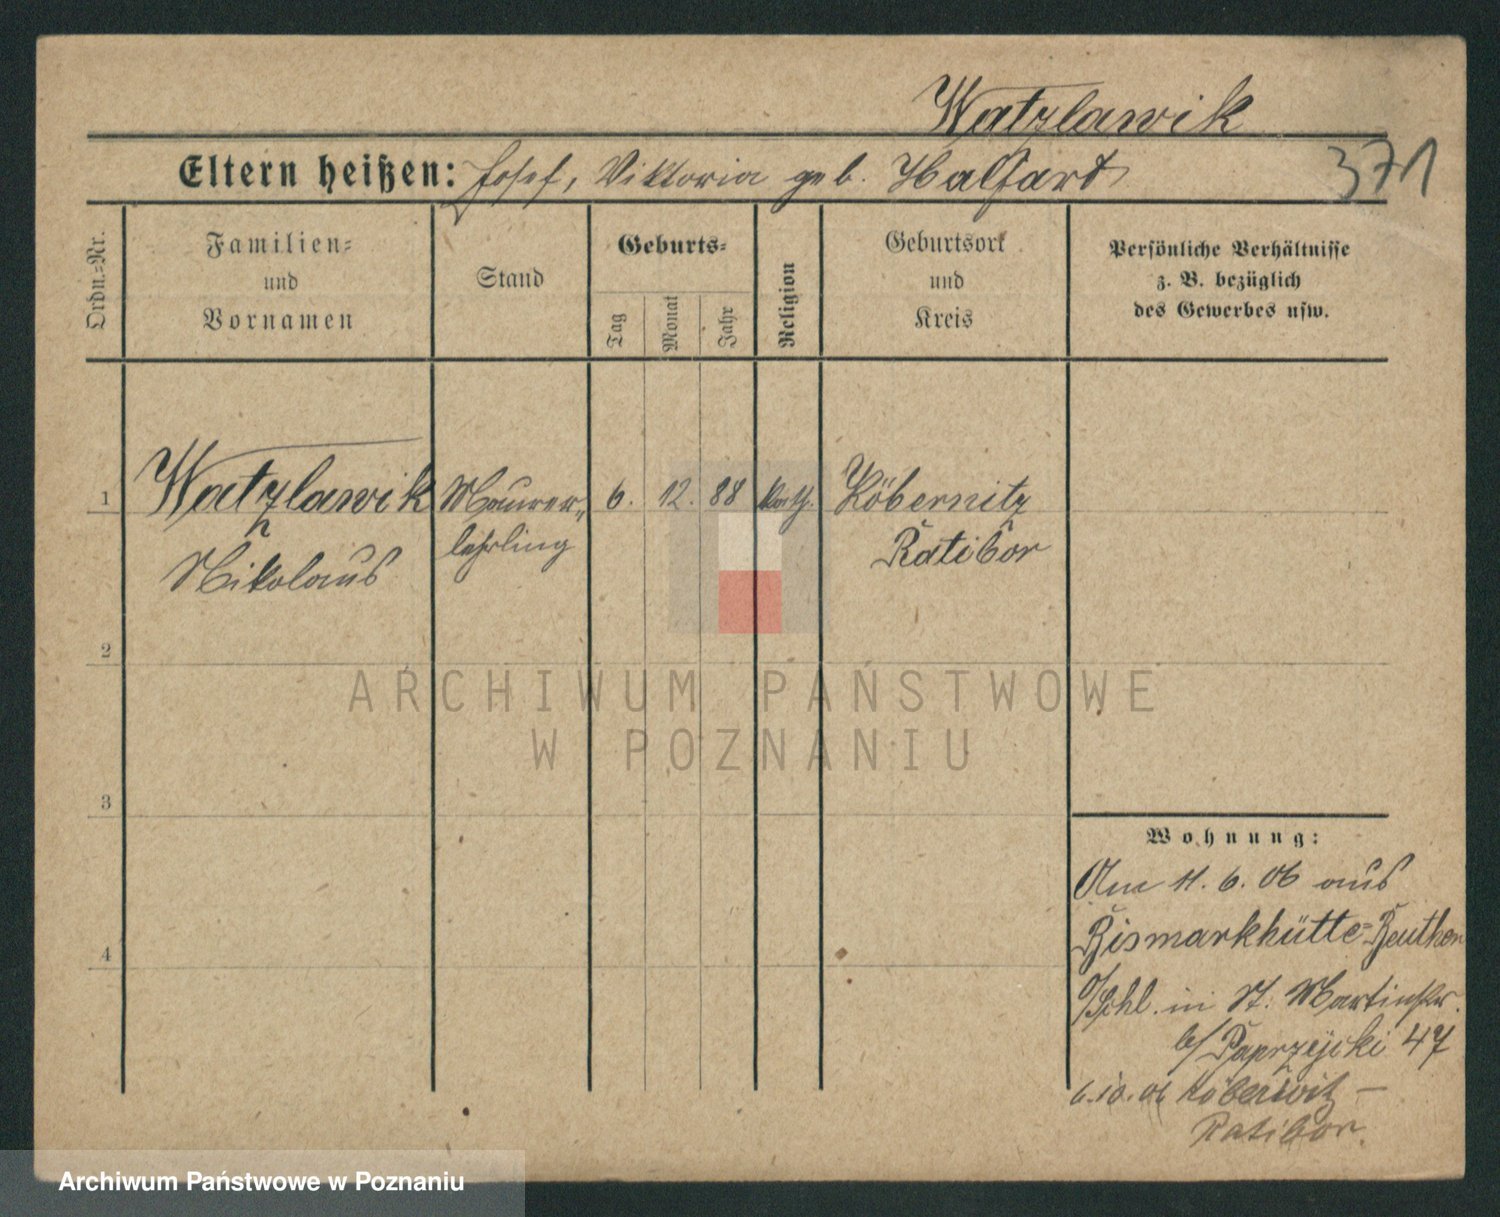 Watzlawik
Eltern heißen: Josef, Viktoria geb. Halfard
371
Ordn.=Nr.
Familien=
und
Vornamen
Stand
Geburts=
Tag
Monat
Jahr
Religion
Geburtsort
und
Kreis
Persönliche Verhältnisse
z. B. bezüglich
des Gewerbes usw.
1 Watzlawik Maurer= 6. 12. 88 kath. Köbernitz
Nikolaus lehrling Ratibor
2
3
4
Wohnung:
Am 11. 6. 06 aus
Bismarkhütte=Beuthen
O/Schl. in St. Martinstr.
b/ Paprzycki 47
6.10.06 Köberwitz –
Ratibor.
ARCHIWUM PAŃSTWOWE
W POZNANIU
Archiwum Państwowe w Poznaniu